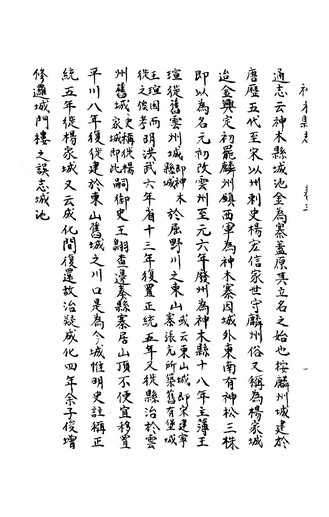 神木縣志 卷二 一
通志云神木縣城池金為寨蓋原其立名之始也按麟州城建於
唐歷五代至宋以州刺史楊宏信家世守麟州俗又稱為楊家城
迨金興定初罷麟州鎮西軍為神木寨因城外東南有神松三株
即以為名元初改雲州至元六年廢州為神木縣十八年主簿王
瑄徙舊雲州城即神木縣於屈野川之東山或云東山城即宋建寧寨張亢所築舊有堡城
王瑄因而徙之考明洪武六年省十三年復置正統五年又徙縣治於雲
州舊城史稱楊家城即此嗣御史王翺查邊奏縣寨居山頂不便宜移置
平川八年復徙建於東山舊城之川口是為今城惟明史註稱正
統五年徙楊家城又云成化間復還故治疑成化四年余子俊增
修邏城門樓之誤志城池